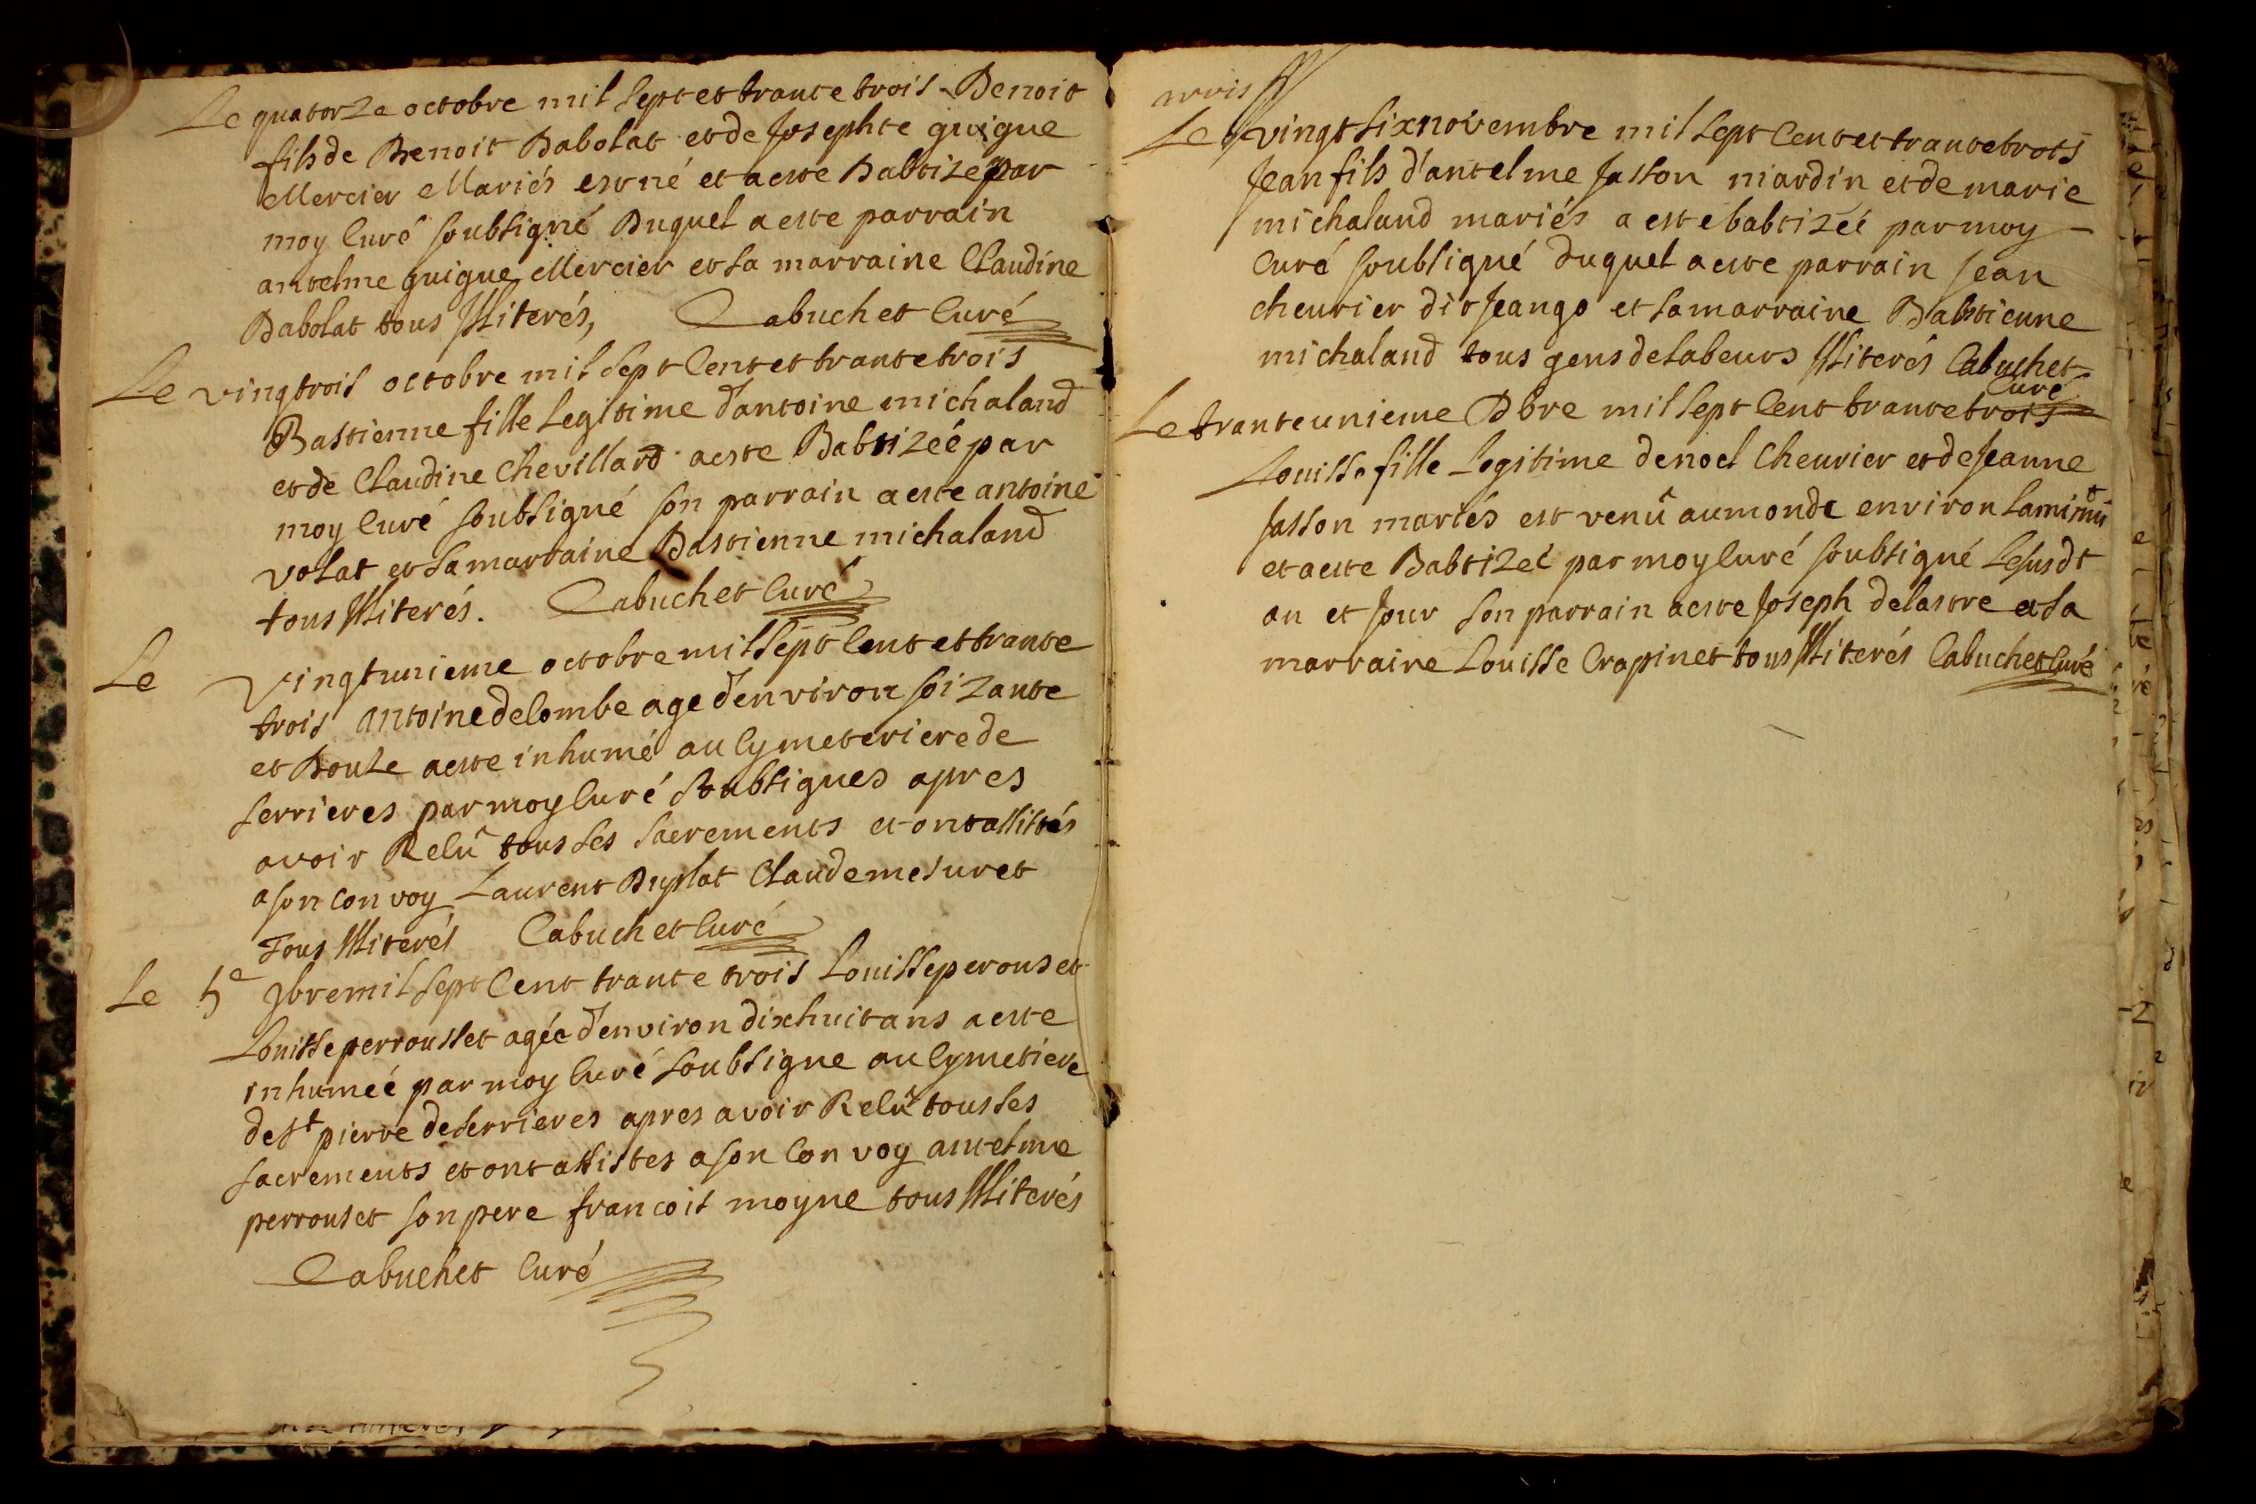 Le quatorze octobre mil sept et trante trois Benoit
fils de Benoit Babolat et de Josephte guigue
Mercier Mariés est né et a este Babtizé par
moy Curé soubsigné Duquel a este parrain
antelme guigue Mercier et sa marraine Claudine
Babolat tous Illiterés, Cabuchet Curé
Le vingtrois octobre mil sept Cent et trante trois
Bastienne fille legitime d'antoine michaland
et de Claudine Chevillard a este Babtizeé par
moy Curé soubsigné son parrain a este antoine
volat et sa marraine Bastienne michaland
tous Illiterés. Cabuchet Curé
Le vingtunieme octobre mil sept Cent et trante
trois antoine delombe age d'environ soizante
et Douze a este inhumé au Cymeteriere de
serrieres par moy Curé Soubsignes apres
avoir Relû tous ses sacrements et ont assistés
a son convoy Laurent Duplat Claude mesuret
Tous Illiterés Cabuchet Curé
Le 5e 9bre mil sept Cent trante trois Louisse perouset
Louisse perrousset agée d'environ dixhuit ans a este
inhumeé par moy Curé soubsigne au Cymetiere
de St pierre de serrieres apres avoir Relû tous ses
sacrements et ont assistes a son Convoy antelme
perrouset son pere francois moyne tous Illiterés
Cabuchet Curé
Le vingt six novembre mil sept Cent et trante trois
Jean fils d'antelme Jasson niardin et de marie
michaland mariés a este babtizeé par moy
Curé soubsigné duquel a este parrain Jean
cheurier dit Jeango et sa marraine Babtienne
michaland tous gens de labeurs Illiterés Cabuchet
Curé
Le tranteunieme Dbre mil sept Cent trante trois
Louisse fille Legitime de noel Cheurier et de Jeanne
Jasson mariés est venû au monde environ la minuit
et a este Babtizeé par moy Curé soubsigné Le susdt
an et Jour son parrain a este Joseph delastre et sa
marraine Louisse Crapinet tous Illiterés Cabuchet Curé